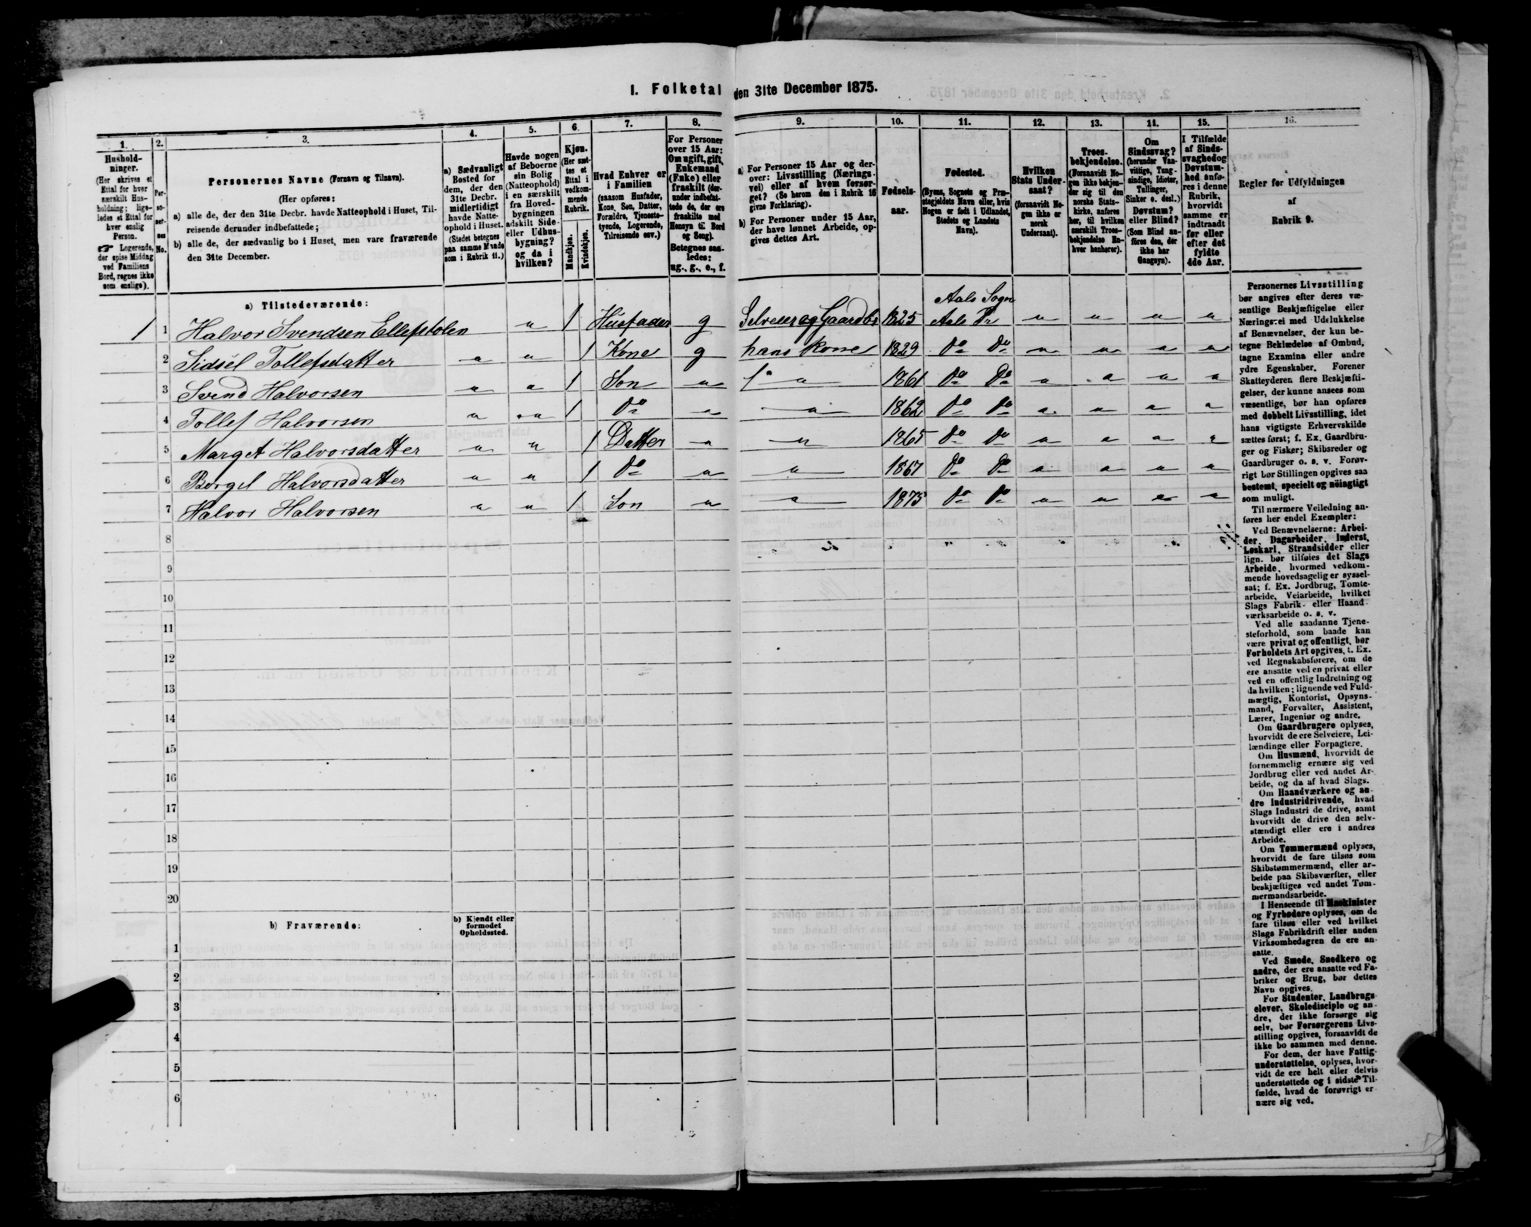 I. Folketal den 31te December 1875.
1. 2. 3. 4. 5. 6. 7. 8. 9. 10. 11. 12. 13. 14. 15. 16.
Hushold-
ninger.
(Her skrives et
Ettal for hver
særskilt Hus-
holdning; lige-
ledes et Ettal for
hver enslig
Person.
☞ Logerende,
der spise Middag
ved Familiens
Bord, regnes ikke
som enslige).
Per-
so-
ner-
nes
No.
Personernes Navne (Fornavn og Tilnavn).
(Her opføres:
a) alle de, der den 31te Decbr. havde Natteophold i Huset, Til-
reisende derunder indbefattede;
b) alle de, der sædvanlig bo i Huset, men vare fraværende
den 31te December.
a) Sædvanligt
Bosted for
dem, der den
31te Decbr.
midlertidigt
havde Natte-
ophold i Huset.
(Stedet betegnes
paa samme Maade
som i Rubrik 11.)
Havde nogen
af Beboerne
sin Bolig
(Natteophold)
i en særskilt
fra Hoved-
bygningen
adskilt Side-
eller Udhus-
bygning?
og da i
hvilken?
Kjøn.
(Her sæt-
tes et
Ettal i
vedkom-
mende
Rubrik.
Mandkjøn.
Kvindekjøn.
Hvad Enhver er
i Familien
(saasom Husfader,
Kone, Søn, Datter,
Forældre, Tjeneste-
tyende, Logerende,
Tilreisende osv.)
For Personer
over 15 Aar:
Om ugift, gift,
Enkemand
(Enke) eller
fraskilt (der-
under indbefat-
tede de, der ere
fraskilte med
Hensyn til Bord
og Seng).
Betegnes saa-
ledes:
ug., g., e., f.
a) For Personer 15 Aar og der-
over: Livsstilling (Nærings-
vei) eller af hvem forsør-
get? (Se herom den i Rubrik 16
givne Forklaring).
b) For Personer under 15 Aar,
der have lønnet Arbeide, op-
gives dettes Art.
Fødsels-
aar.
Fødested.
(Byens, Sognets og Præ-
stegjeldets Navn eller, hvis
Nogen er født i Udlandet,
Stedets og Landets
Navn).
Hvilken
Stats Under-
saat?
(forsaavidt No-
gen ikke er
norsk
Undersaat).
Troes-
bekjendelse.
(Forsaavidt No-
gen ikke bekjen-
der sig til den
norske Stats-
kirke, anføres
her, til hvilken
særskilt Troes-
bekjendelse En-
hver henhører).
Om
Sindssvag?
(herunder Van-
vittige, Tung-
sindige, Idioter,
Tullinger,
Sinker o. desl.)
Døvstum?
eller Blind?
(Som Blind an-
føres den, der
ikke har
Gangsyn).
I Tilfælde
af Sinds-
svaghed og
Døvstum-
hed anfø-
res i denne
Rubrik,
hvorvidt
samme er
indtraadt
før eller
efter det
fyldte
4de Aar.
Regler for Udfyldningen
af
Rubrik 9.
a) Tilstedeværende:
Aals Sogn
1 1 Halvor Svendsen Ellefstolen " 1 Husfader g Selveier og Gaardbr 1825 Aals Pr " " " "
2 Sidsel Tollefsdatter " " 1 Kone g hans Kone 1829 Do Do " " " "
3 Svend Halvorsen " " 1 Søn " " 1861 Do Do " " " "
4 Tollef Halvorsen " " 1 Do " " 1862 Do Do " " " "
5 Marget Halvorsdatter " " 1 Datter " " 1865 Do Do " " " "
6 Bergit Halvorsdatter " " 1 Do " " 1867 Do Do " " " "
7 Halvor Halvorsen " " 1 Søn " " 1875 Do Do " " " "
8
9
10
11
12
13
14
15
16
17
18
19
20
b) Fraværende:
b) Kjendt eller
formodet
Opholdssted.
1
2
3
4
5
6
Personernes Livsstilling
bør angives efter deres væ-
sentlige Beskjæftigelse eller
Næringsvei med Udelukkelse
af Benævnelser, der kun be-
tegne Beklædelse af Ombud,
tagne Examina eller andre
ydre Egenskaber. Forener
Skatteyderen flere Beskjæfti-
gelser, der kunne ansees som
væsentlige, bør han opføres
med dobbelt Livsstilling, idet
hans vigtigste Erhvervskilde
sættes først; f. Ex. Gaardbru-
ger og Fisker; Skibsreder og
Gaardbruger o. s. v. Forøv-
rigt bør Stillingen opgives saa
bestemt, specielt og nøiagtigt
som muligt.
Til nærmere Veiledning an-
føres her endel Exempler:
Ved Benævnelserne: Arbei-
der, Dagarbeider, Inderst,
Løskarl, Strandsidder eller
lign. bør tilføies det Slags
Arbeide, hvormed vedkom-
mende hovedsagelig er syssel-
sat; f. Ex. Jordbrug, Tomte-
arbeide, Veiarbeide, hvilket
Slags Fabrik- eller Haand-
værksarbeide o. s. v.
Ved alle saadanne Tjene-
steforhold, som baade kan
være privat og offentligt, bør
Forholdets Art opgives, t. Ex.
ved Regnskabsførere, om de
ere ansatte ved en privat eller
ved en offentlig Indretning og
da hvilken; lignende ved Fuld-
mægtig, Kontorist, Opsyns-
mand, Forvalter, Assistent,
Lærer, Ingeniør og andre.
Om Gaardbrugere oplyses,
hvorvidt de ere Selveiere, Lei-
lændinge eller Forpagtere.
Om Husmænd, hvorvidt de
fornemmelig ernære sig ved
Jordbrug eller ved andet Ar-
beide, og da af hvad Slags.
Om Haandværkere og an-
dre Industridrivende, hvad
Slags Industri de drive, samt
hvorvidt de drive den selv-
stændigt eller ere i andres
Arbeide.
Om Tømmermænd oplyses,
hvorvidt de fare tilsøs som
Skibstømmermænd, eller ar-
beide paa Skibsværfter, eller
beskjæftiges ved andet Tøm-
mermandsarbeide.
I Henseende til Maskinister
og Fyrbødere oplyses, om de
fare tilsøs eller ved hvilket
Slags Fabrikdrift eller anden
Virksomhedsgren de ere an-
satte.
Ved Smede, Snedkere og
andre, der ere ansatte ved Fa-
briker og Brug, bør dettes
Navn opgives.
For Studenter, Landbrugs-
elever, Skoledisciple og an-
dre, der ikke forsørge sig
selv, bør Forsørgerens Livs-
stilling opgives, forsaavidt de
ikke bo sammen med denne.
For dem, der have Fattig-
understøttelse, oplyses, hvor-
vidt de ere helt eller delvis
understøttede og i sidste Til-
fælde, hvad de forøvrigt er-
nære sig ved.